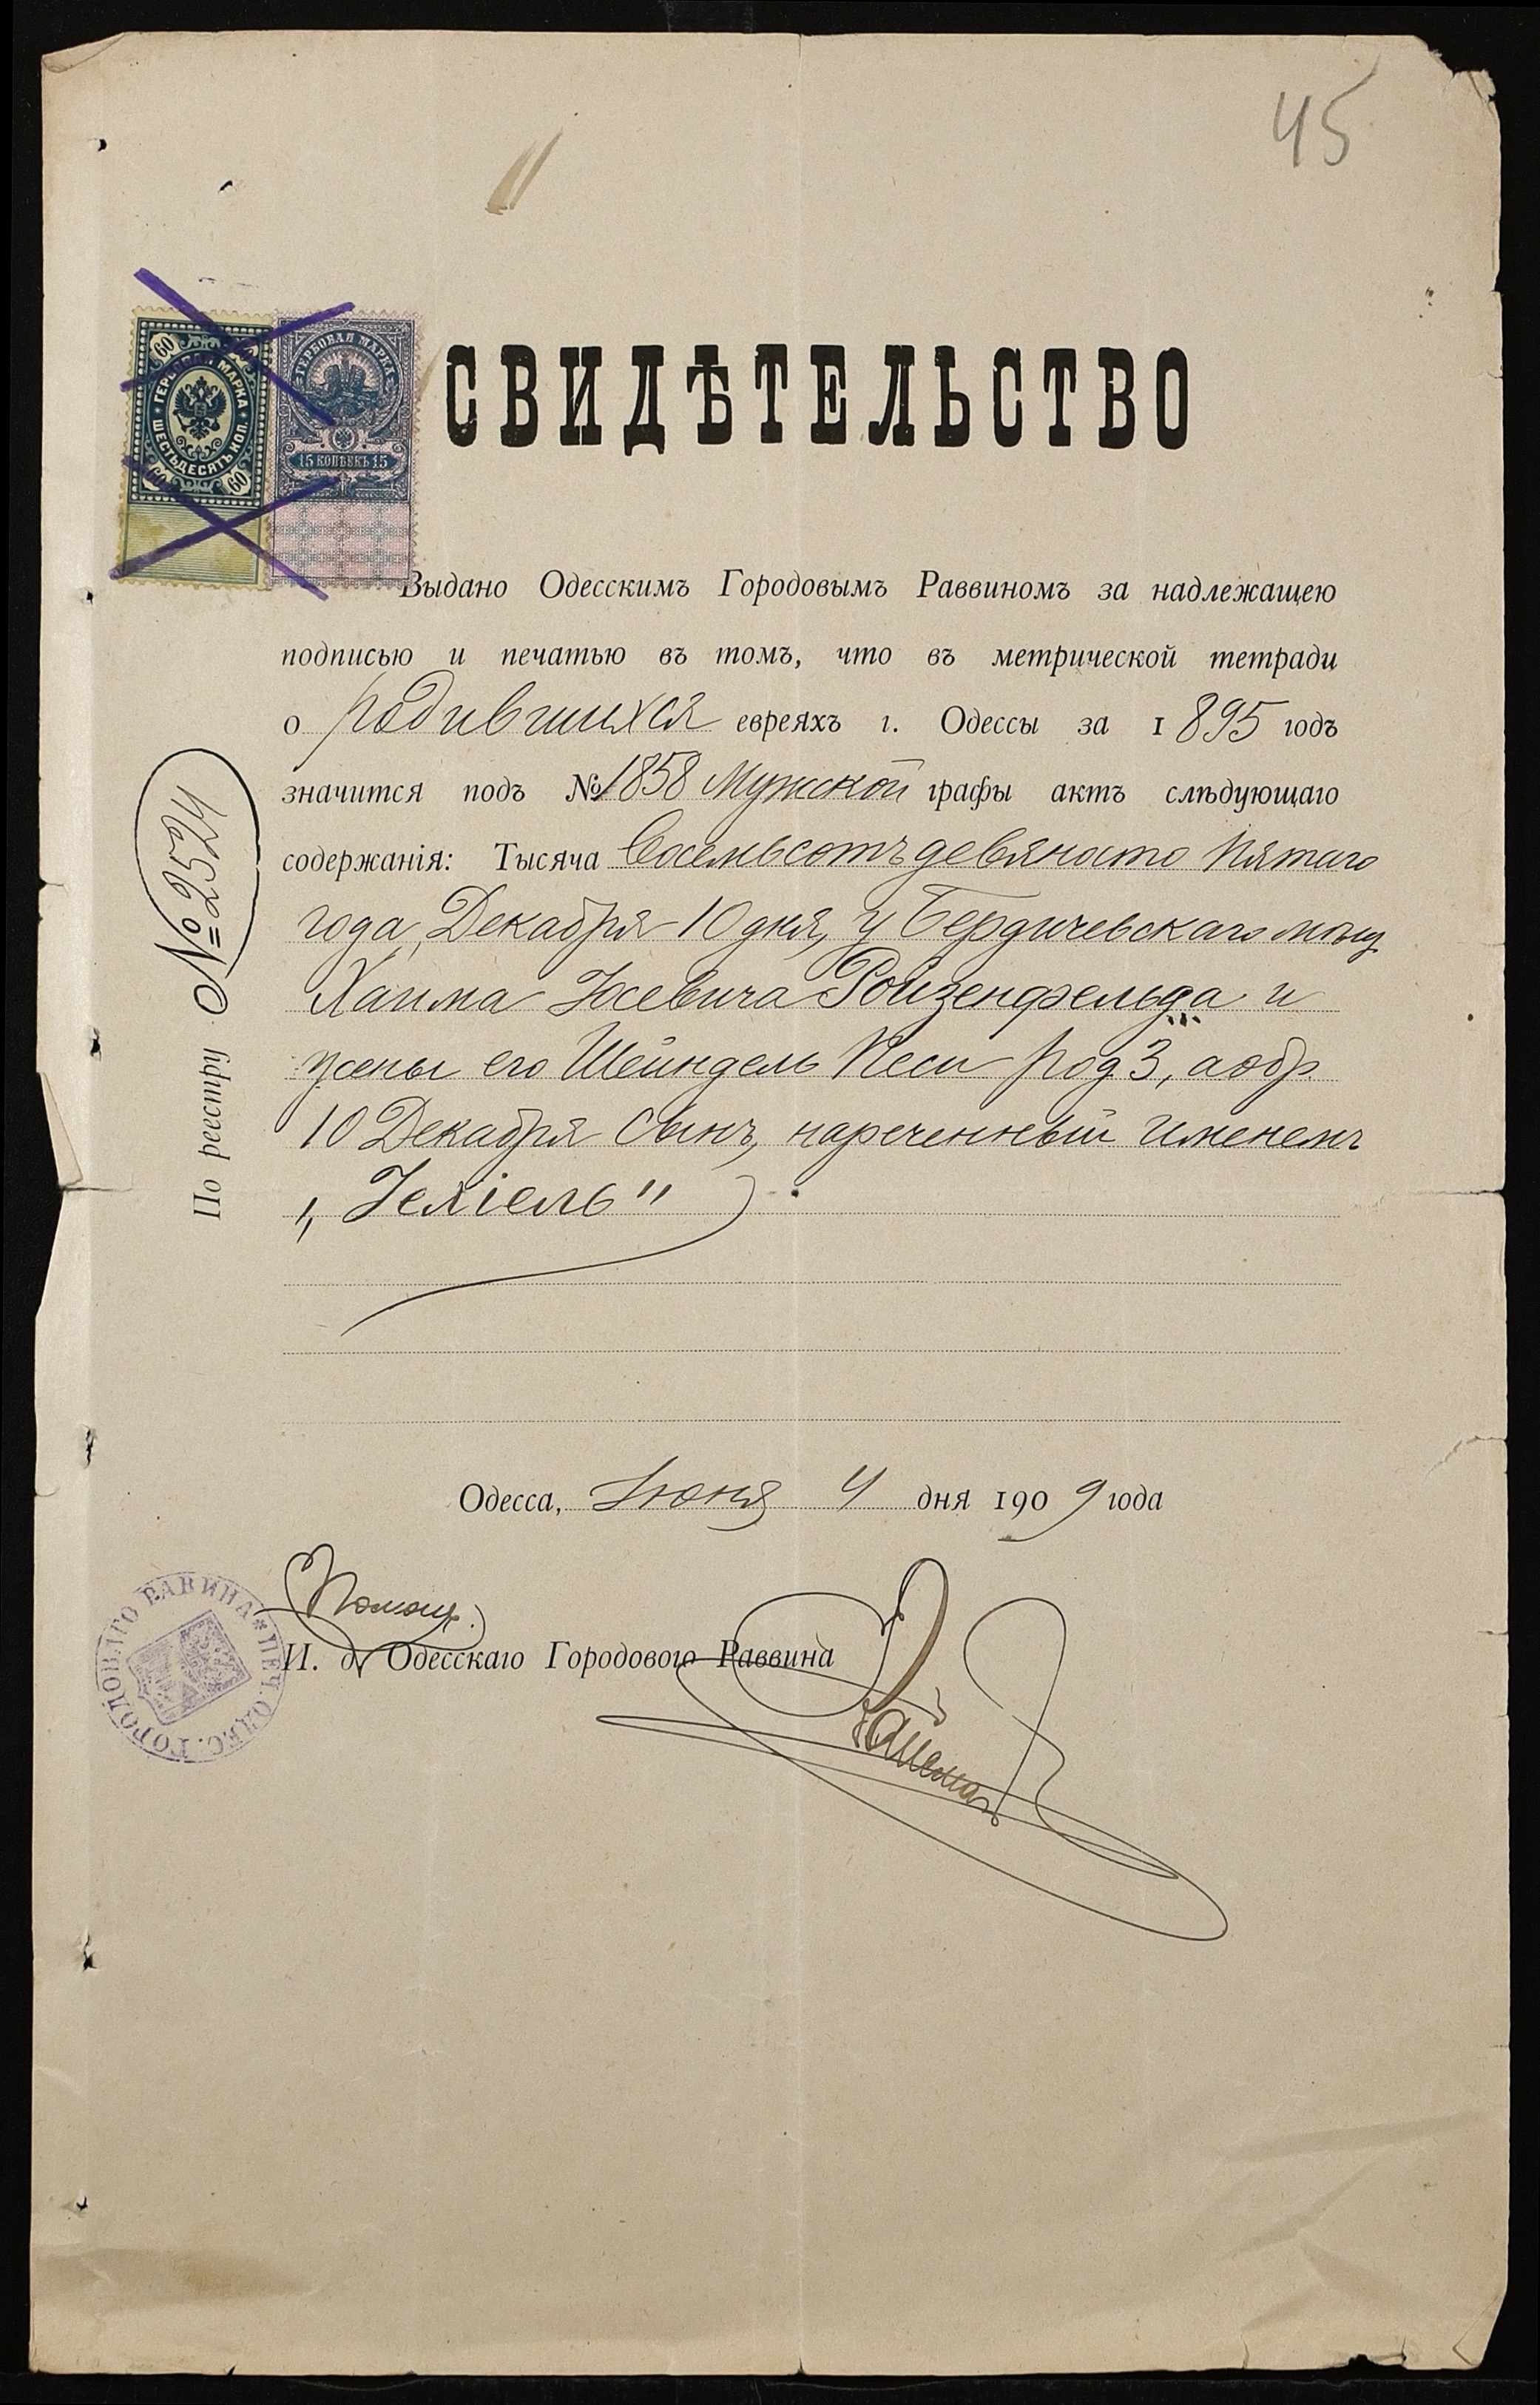 45
ГЕРБОВАЯ МАРКА
ШЕСТЬДЕСЯТЪ КОП.
60 60 60
ГЕРБОВАЯ МАРКА
15 КОПѢЕКЪ 15
СВИДѢТЕЛЬСТВО
Выдано Одесскимъ Городовымъ Раввиномъ за надлежащею
подписью и печатью въ томъ, что въ метрической тетради
о родившихся евреяхъ г. Одессы за 1895 годъ
значится подъ № 1858 Мужской графы актъ слѣдующаго
содержанія: Тысяча восемьсотъ девяносто пятаго
года, Декабря 10 дня, у Бердичевскаго мѣщ
Хаима Іосевича Ройзенфельда и
жены его Шейндель Песи род 3, а обр.
10 Декабря сынъ, нареченный именемъ
„Іехіель"
По реестру № 2524
Одесса, Июня 4 дня 1909 года
Помощ.
И. д. Одесскаго Городового Раввина
ПЕЧ. ОДЕС. ГОРОДОВАГО РАВИНА